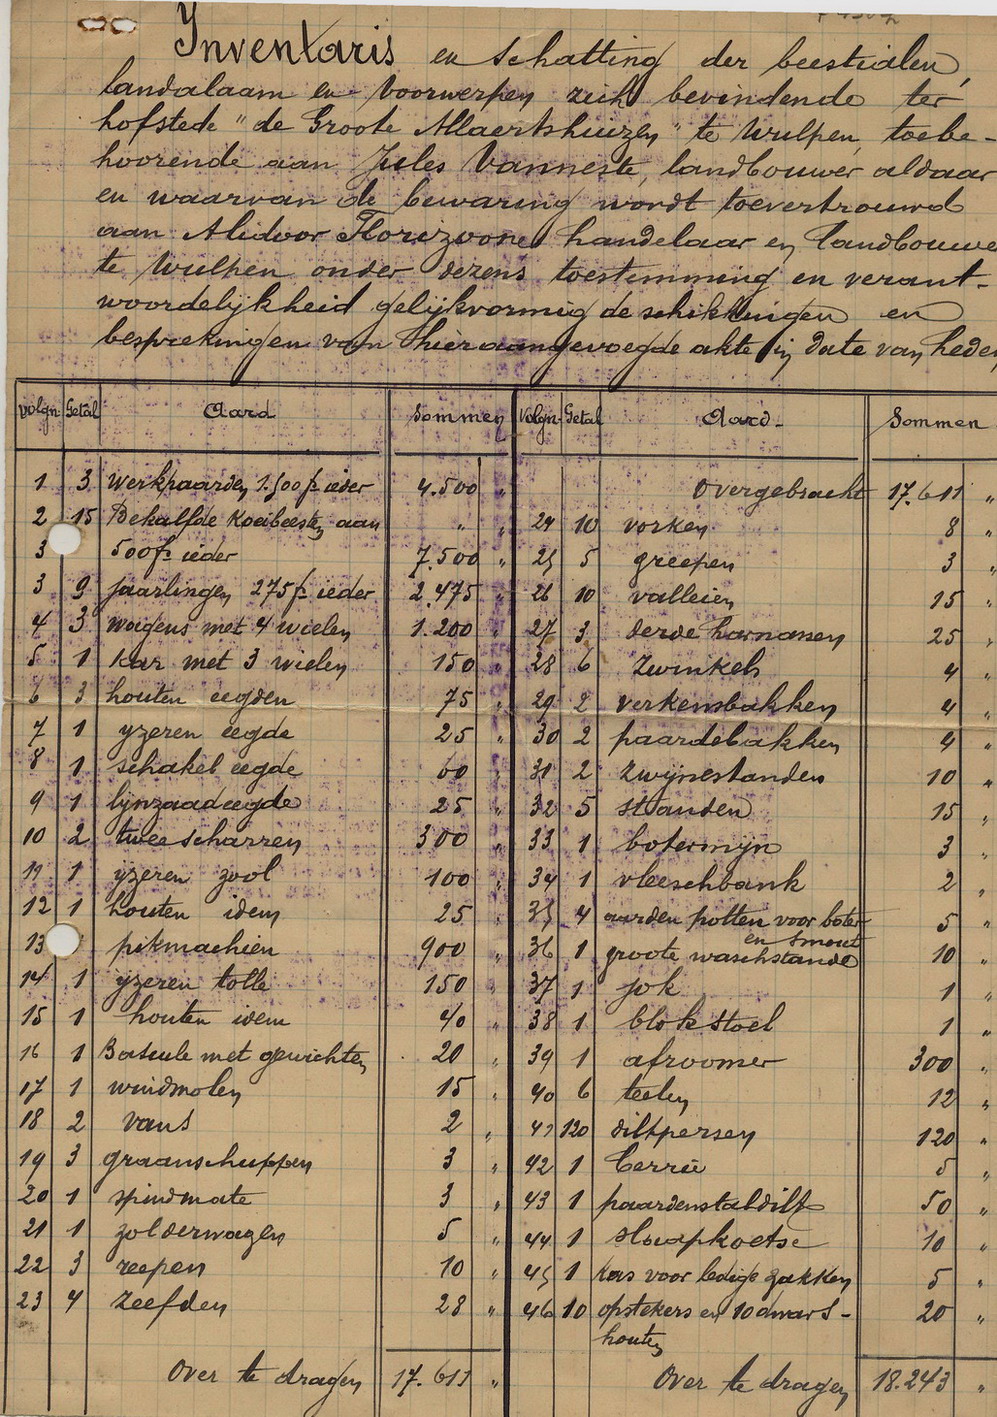 Inventaris en schatting der beestialen,
landalaam en voorwerpen zich bevindende ter
hofstede "de Groote Allaertshuizen" te Wulpen, toebe-
hoorende aan Jules Vanneste, landbouwer aldaar
en waarvan de bewaring wordt toevertrouwd
aan Alidoor Florizoone handelaar en landbouwe
te Wulpen onder dezens toestemming en verant-
woordelijkheid gelijkvormig de schikkingen en
besprekingen van hieraangevoegde akte in date van heden
Volgn Getal Aard Sommen Volgn Getal Aard Sommen
1 3 Werkpaarden 1.500 f ieder 4.500 "
2 15 Bekalfde Koeibeesten aan " "
3 500 fr ieder 7.500 "
3 9 jaarlingen 275 f ieder 2.475 "
4 3 wagens met 4 wielen 1.200 "
5 1 kar met 3 wielen 150 "
6 3 houten eegden 75 "
7 1 yzeren eegde 25 "
8 1 schakel eegde 60 "
9 1 lynzaadeegde 25 "
10 2 twee scharren 300 "
11 1 yzeren zool 100 "
12 1 houten idem 25 "
13 pikmachien 900 "
14 1 yzeren tolle 150 "
15 1 houten idem 40 "
16 1 Bascule met gewichten 20 "
17 1 windmolen 15 "
18 2 vans 2 "
19 3 graanschuppen 3 "
20 1 spindmate 3 "
21 1 zolderwagen 5 "
22 3 reepen 10 "
23 4 zeefden 28 "
Over te dragen 17.611 "
Overgebracht 17.611 "
24 10 vorken 8 "
25 5 greepen 3 "
26 10 valleien 15 "
27 3 derde harnassen 25 "
28 6 zwinkels 4 "
29 2 verkensbakken 4 "
30 2 paardebakken 4 "
31 2 zwijnestanden 10 "
32 5 standen 15 "
33 1 botermijn 3 "
34 1 vleeschbank 2 "
35 4 aarden potten voor boter 5 "
en smout
36 1 groote waschstande 10 "
37 1 jok 1 "
38 1 blokstoel 1 "
39 1 afroomer 300 "
40 6 teelen 12 "
41 120 diltpersen 120 "
42 1 berrie 5 "
43 1 paardenstaldilt 50 "
44 1 slaapkoetse 10 "
45 1 kas voor ledige zakken 5 "
46 10 opstekers en 10 dwars- 20 "
houten
Over te dragen 18.243 "